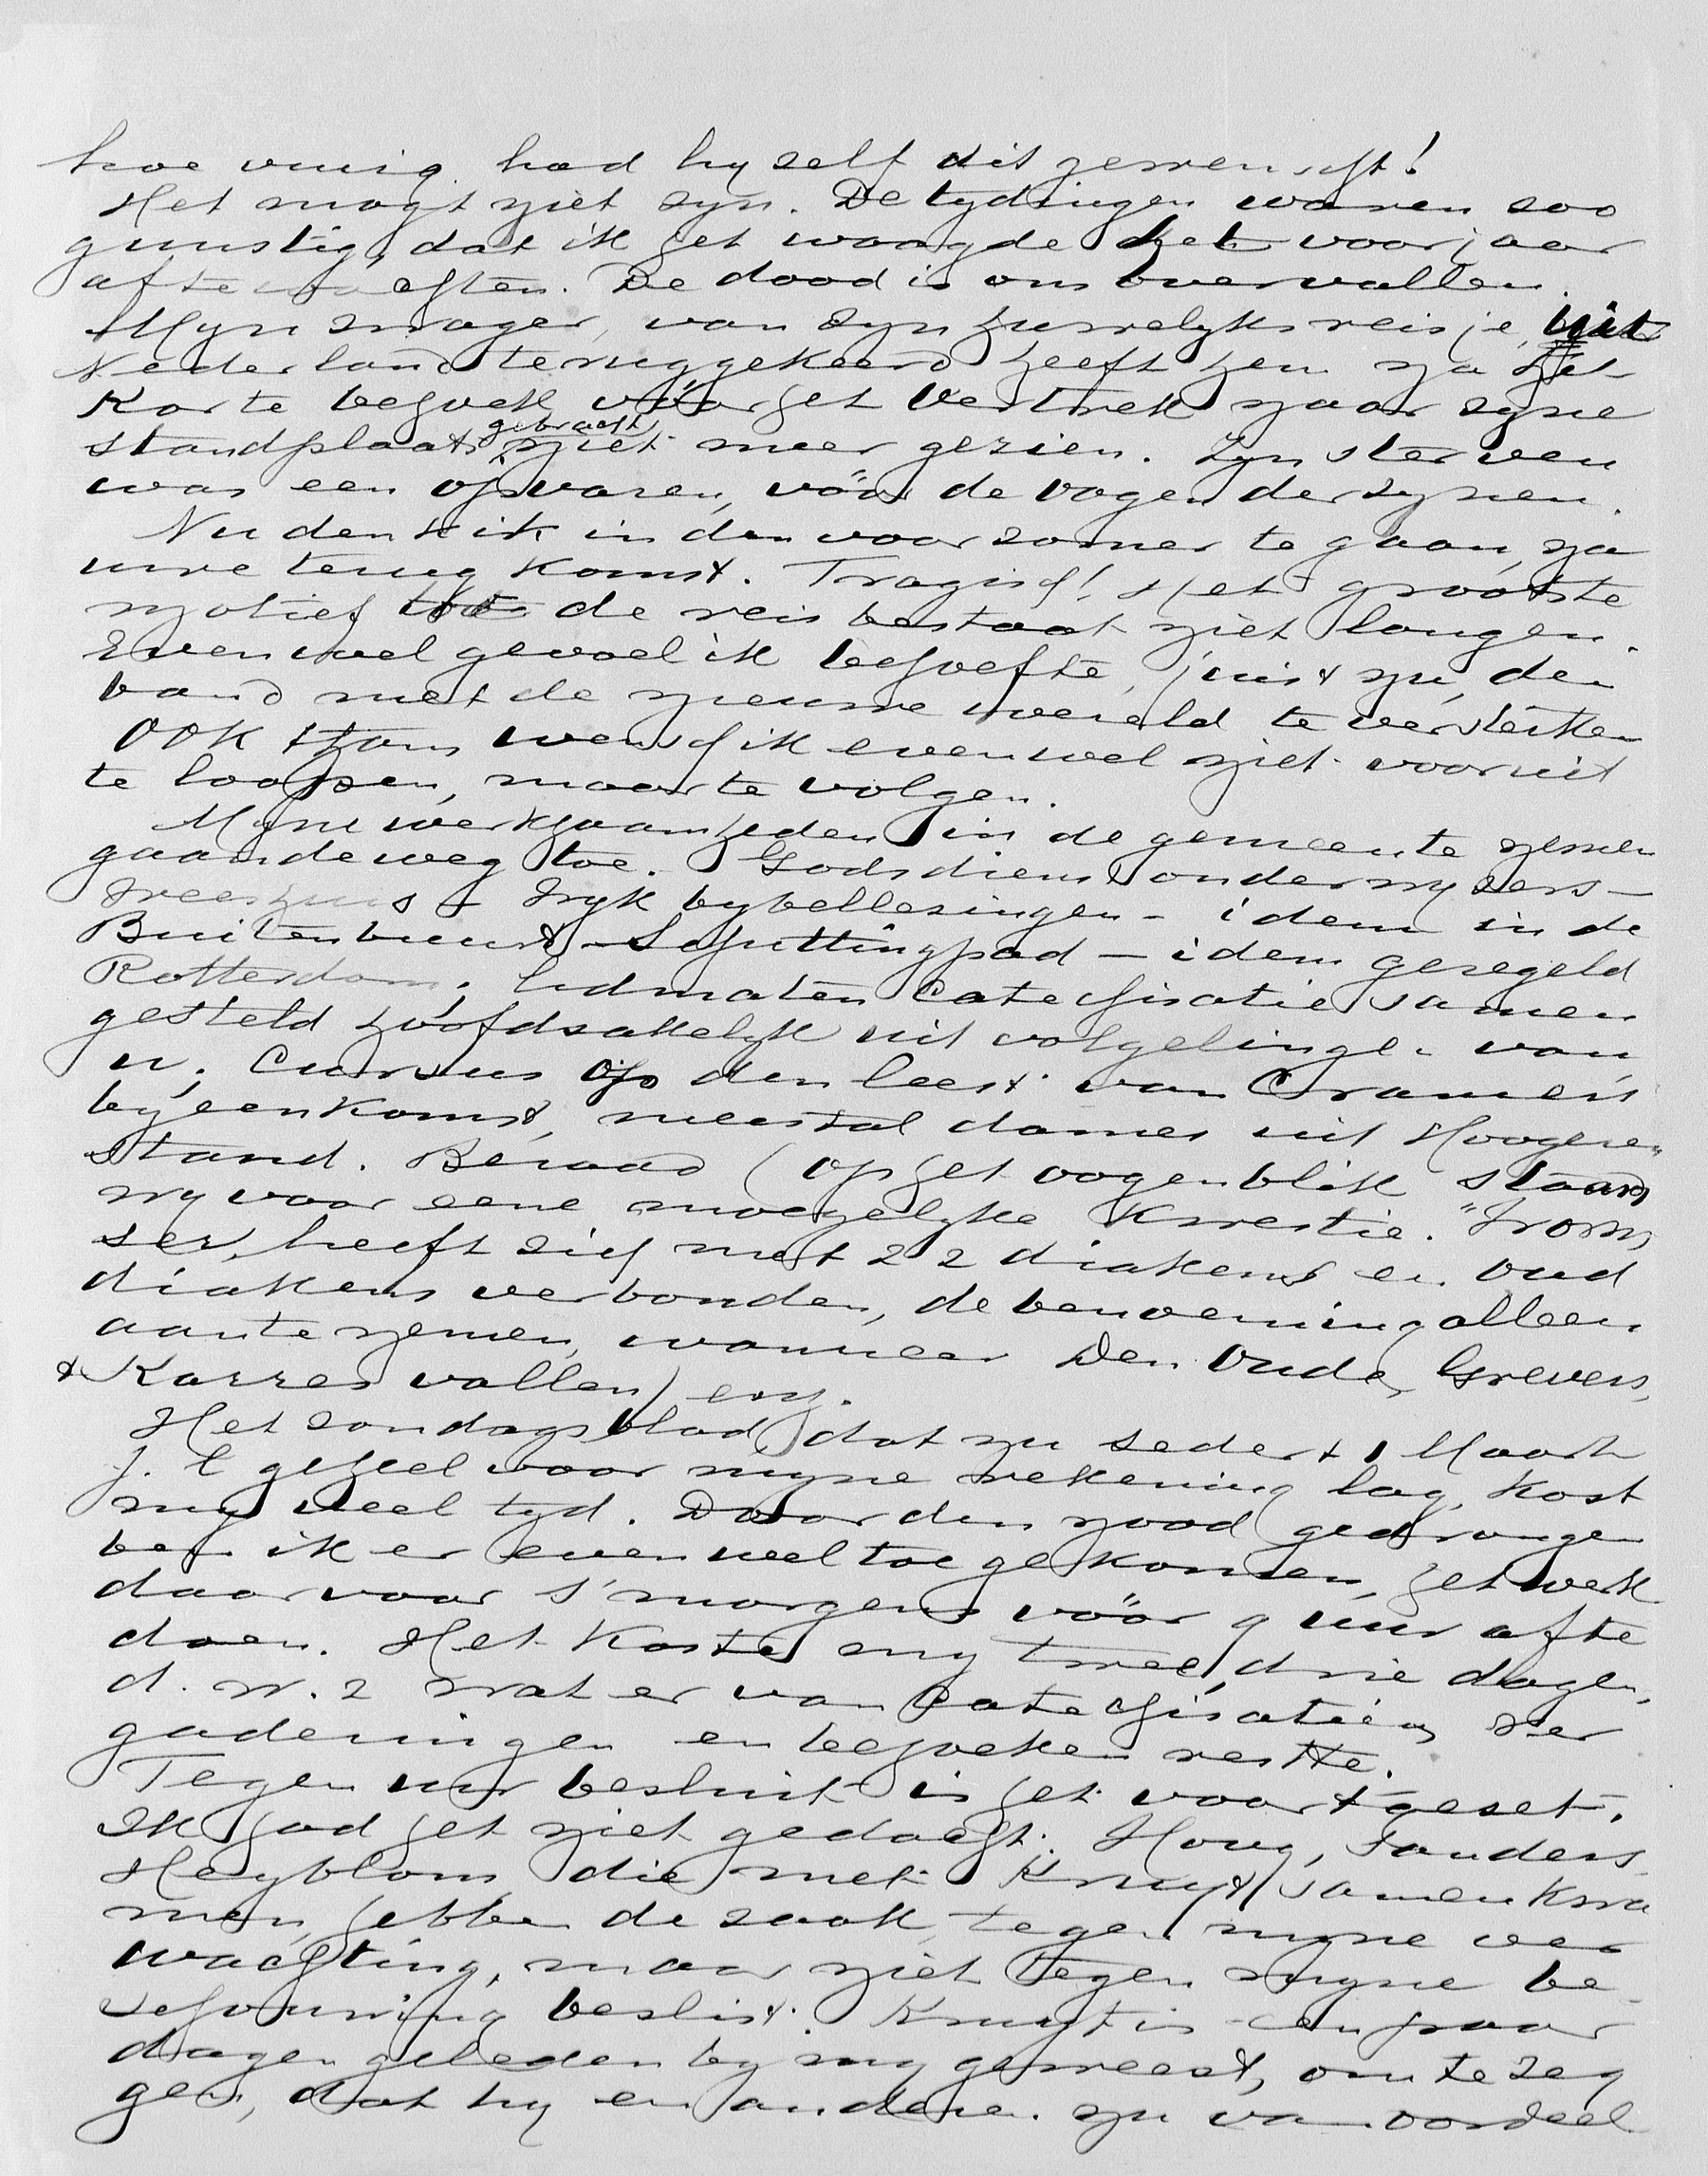 hoe vurig had hy self dit gewenscht!
Het mogt niet zyn. De tydingen waren zoo
gunstig, dat ik het waagde het voorjaar
af te wachten. De dood is ons overvallen.
Myn zwager, van zyn huwelyksreisje uit
Nederland teruggekeerd heeft hem na het
korte bezoek vóór het vertrek naar zyne
standplaats gebracht niet meer gezien. Zyn sterven
was een opvaren, vóór de oogen der zynen.
Nu denk ik in den voorzomer te gaan, na
uwe terugkomst. Tragisch! Het grootste
motief tot de reis bestaat niet langer.
Evenwel gevoel ik behoefte, juist nu, den
band met de nieuwe wereld te versterken
Ook thans wensch ik evenwel niet vooruit
te loopen, maar te volgen.
Myne werkzaamheden in de gemeente nemen
gaandeweg toe. Godsdienstonderwyzers-
Weeshuis - Wyk bybellezingen - idem in de
Buitenbuurt - Schuttingpad - idem geregeld
Rotterdam; lidmaten catechisatie samen
gesteld hoofdzakelyk uit volgelingen van
u. Cursus op den leest van Cramer's
byeenkomst, meestal dames uit Hoogeren
stand. Beraad (op het oogenblik staan
wy voor eene moeyelyke kwestie.
heeft zich met 22 diakens en oud
diakens verbonden, de benoeming alleen
aan te nemen, wanneer Den Ouden, Grevers,
& Karres vallen) enz.
Het zondagsblad, dat nu sedert 1 Maart
j. l. geheel voor myne rekening lag, kost
my veel tyd. Door den nood gedrongen
ben ik er evenwel toe gekomen, het werk
daarvoor s'morgens vóór 9 uur af te
doen. Het kostte my twee, drie dagen,
d. w. z wat er van catechisatien ver
gaderingen en bezoeken restte.
Tegen uw besluit is het voortgezet.
Ik had het niet gedacht. Hovy, Sanders
Heyblom, die met Kruyt samenkwa
men, hebben de zaak, tegen myne ver
wachting, maar niet tegen myne be-
schouwing beslist. Kruyt is een paar
dagen geleden by my geweest, om te zeg
gen, dat hy en anderen nu van oordeel